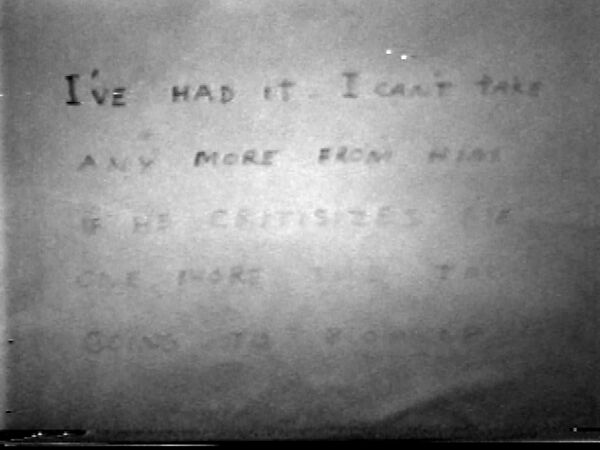 I'VE HAD IT I CAN'T TAKE
ANY MORE FROM HIM
IF HE CRITISIZES ME
ONE MORE
GOING TO